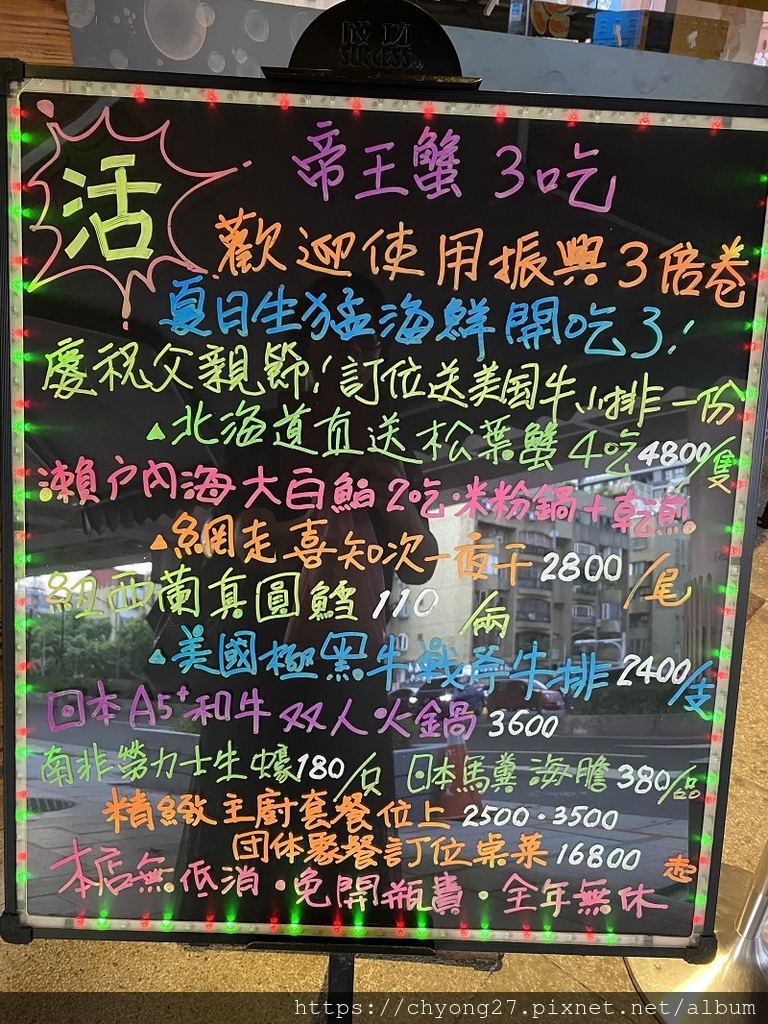 成功
SUCCESS
活
帝王蟹 3吃
歡迎使用振興3倍卷
夏日生猛海鮮開吃了!
慶祝父親節!訂位送美国牛小排一份
▲北海道直送松葉蟹 4吃4800/隻
瀨户內海大白鯧2吃·米粉鍋+乾煎
▲網走喜知次一夜干2800/尾
紐西蘭真圓鱈 110/兩
▲美國極黑牛戰斧牛排2400/支
日本A5+和牛双人火鍋 3600
南非勞力士生蠔180/只 日本馬糞海膽380/品
精緻主廚套餐位上2500·3500
团体聚餐訂位桌菜16800起
本店無低消·免開瓶費·全年無休
https://chyong27.pixnet.net/album